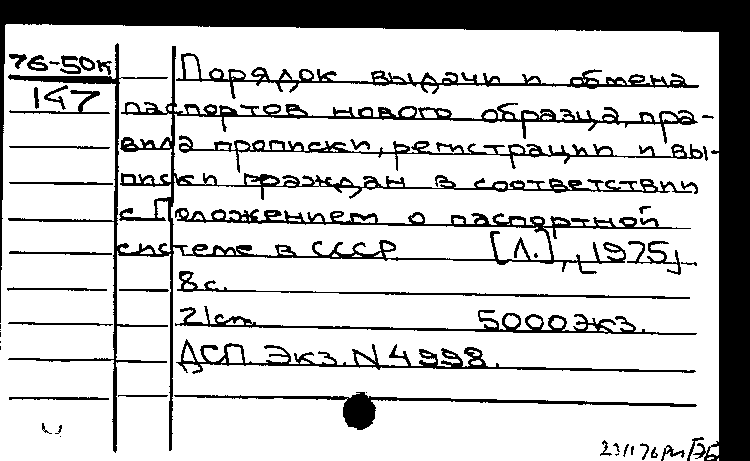 76-50к
147
Порядок выдачи и обмена
паспортов нового образца, пра-
вила прописки, регистрации и вы-
писки граждан в соответствии
с Положением о паспортной
системе в СССР [Л.], [1975].
8 с.
21 см. 5000 экз.
ДСП. Экз. N 4998.